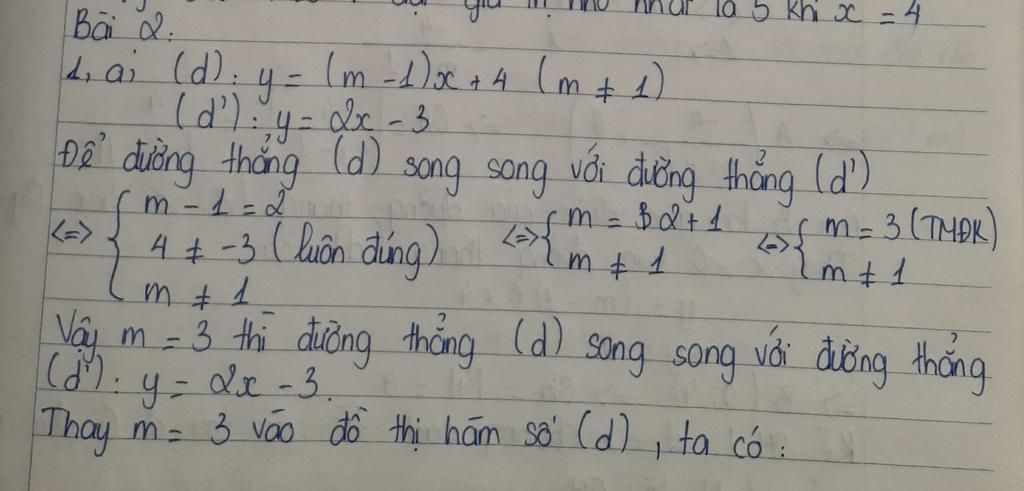 giá trị nhỏ nhất là 5 khi x = 4
Bài 2:
1, a, (d): y = (m - 1)x + 4 (m ≠ 1)
(d'): y = 2x - 3
Để đường thẳng (d) song song với đường thẳng (d')
<=> { m - 1 = 2 <=> { m = 2 + 1 <=> { m = 3 (TMĐK)
4 ≠ -3 (luôn đúng) m ≠ 1 m ≠ 1
m ≠ 1
Vậy m = 3 thì đường thẳng (d) song song với đường thẳng
(d'): y = 2x - 3.
Thay m = 3 vào đồ thị hàm số (d), ta có: